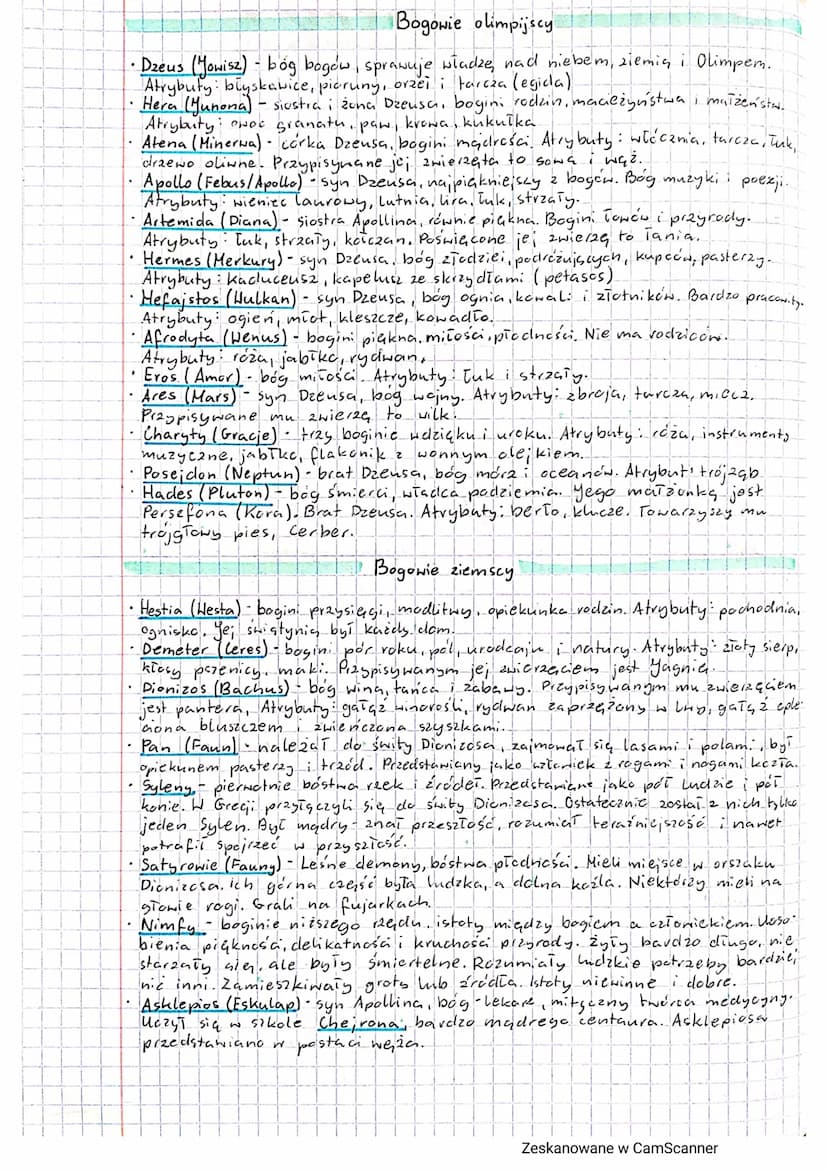 Bogowie olimpijscy
· Dzeus (Jowisz) - bóg bogów, sprawuje władzę nad niebem, ziemią i Olimpem.
Atrybuty: błyskawice, pioruny, orzeł i tarcza (egida)
· Hera (Junona) - siostra i żona Dzeusa, bogini rodzin, macieżyństwa i małżeństw.
Atrybuty: owoc granatu, paw, krowa, kukułka
· Atena (Minerwa) - córka Dzeusa, bogini mądrości. Atrybuty: włócznia, tarcza, łuk,
drzewo oliwne. Przypisywane jej zwierzęta to sowa i wąż.
· Apollo (Febus/Apollo) - syn Dzeusa, najpiękniejszy z bogów. Bóg muzyki i poezji.
Atrybuty: wieniec laurowy, lutnia, lira, łuk, strzały.
· Artemida (Diana) - siostra Apollina, równie piękna. Bogini łowów i przyrody.
Atrybuty: łuk, strzały, kołczan. Poświęcone jej zwierzę to łania.
· Hermes (Merkury) - syn Dzeusa, bóg złodziei, podróżujących, kupców, pasterzy.
Atrybuty: Kaduceusz, kapelusz ze skrzydłami (petasos)
· Hefajstos (Wulkan) - syn Dzeusa, bóg ognia, kowali i złotników. Bardzo pracowity.
Atrybuty: ogień, młot, kleszcze, kowadło.
· Afrodyta (Wenus) - bogini piękna, miłości, płodności. Nie ma rodziców.
Atrybuty: róża, jabłko, rydwan.
· Eros (Amor) - bóg miłości. Atrybuty: łuk i strzały.
· Ares (Mars) - syn Dzeusa, bóg wojny. Atrybuty: zbroja, tarcza, miecz.
Przypisywane mu zwierzę to wilk.
· Charyty (Gracje) - trzy boginie wdzięku i uroku. Atrybuty: róża, instrumenty
muzyczne, jabłko, flakonik z wonnym olejkiem.
· Posejdon (Neptun) - brat Dzeusa, bóg mórz i oceanów. Atrybut: trójząb
· Hades (Pluton) - bóg śmierci, władca podziemia. Jego małżonką jest
Persefona (Kora). Brat Dzeusa. Atrybuty: berło, klucze. Towarzyszy mu
trójgłowy pies, Cerber.
Bogowie ziemscy
· Hestia (Westa) - bogini przysięgi, modlitwy, opiekunka rodzin. Atrybuty: pochodnia,
ognisko. Jej świątynią był każdy dom.
· Demeter (Ceres) - bogini pór roku, pól, urodzaju i natury. Atrybuty: złoty sierp,
kłosy pszenicy, maki. Przypisywanym jej zwierzęciem jest Jagnię.
· Dionizos (Bachus) - bóg wina, tańca i zabawy. Przypisywanym mu zwierzęciem
jest pantera, Atrybuty: gałąź winorośli, rydwan zaprzężony w lwy, gałąź ople-
ciona bluszczem i zwieńczona szyszkami.
· Pan (Faun) - należał do świty Dionizosa, zajmował się lasami i polami, był
opiekunem pasterzy i trzód. Przedstawiany jako człowiek z rogami i nogami kozła.
· Syleny - pierwotnie bóstwa rzek i źródeł. Przedstawiane jako pół ludzie i pół
konie. W Grecji przyłączyli się do świty Dionizosa. Ostatecznie został z nich tylko
jeden Sylen. Był mądry - znał przeszłość, rozumiał teraźniejszość i nawet
potrafił spojrzeć w przyszłość.
· Satyrowie (Fauny) - Leśne demony, bóstwa płodności. Mieli miejsce w orszaku
Dionizosa. Ich górna część była ludzka, a dolna koźla. Niektórzy mieli na
głowie rogi. Grali na fujarkach.
· Nimfy - boginie niższego rzędu, istoty między bogiem a człowiekiem. Uoso-
bienia piękności, delikatności i kruchości przyrody. Żyły bardzo długo, nie
starzały się, ale były śmiertelne. Rozumiały ludzkie potrzeby bardziej
niż inni. Zamieszkiwały groty lub źródła. Istoty niewinne i dobre.
· Asklepios (Eskulap) - syn Apollina, bóg-lekarz, mityczny twórca medycyny.
Uczył się w szkole Chejrona, bardzo mądrego centaura. Asklepiosa
przedstawiano w postaci węża.
Zeskanowane w CamScanner